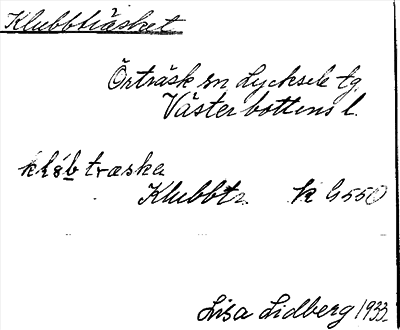 Klubbträsket
Örträsk sn Lycksele tg.
Västerbottens l.
klöb træska
Klubbtr. k G550
Lisa Lidberg 1933.